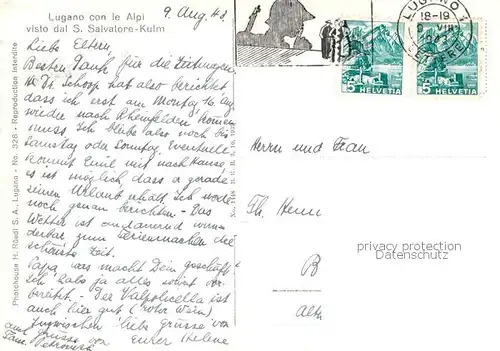 Lugano con le Alpi
visto dal S. Salvatore-Kulm
9. Aug. 43
Liebe Eltern,
Besten Dank für die Zeitungen
Dr. Schoop hat also berichtet
dass ich erst am Montag 16. Aug
wieder nach Rheinfelden kommen
muss. Ich bleibe also noch bis
Samstag oder Sonntag. Eventuell
kommt Emil mit nach Hause,
es ist möglich, dass er gerade
seinen Urlaub erhält. Ich werde
noch genau berichten. Das
Wetter ist andauernd wun-
derbar, zum Ferienmachen die
schönste Zeit.
Papa was macht Dein Geschäft
Ich habe ja alles schön vor-
bereitet. - Der Valpolicella ist
auch hier gut (roter Wein)
Inzwischen liebe Grüsse von
Eurer Helene
auch Grüsse von
Fam.
Photohouse H. Rüedi S. A., Lugano - No. 328 - Reproduction interdite
LUGANO 1
18-19
VIII
LETTERE
5
HELVETIA
5
HELVETIA
Herrn und Frau
Th.
B
privacy protection
Datenschutz